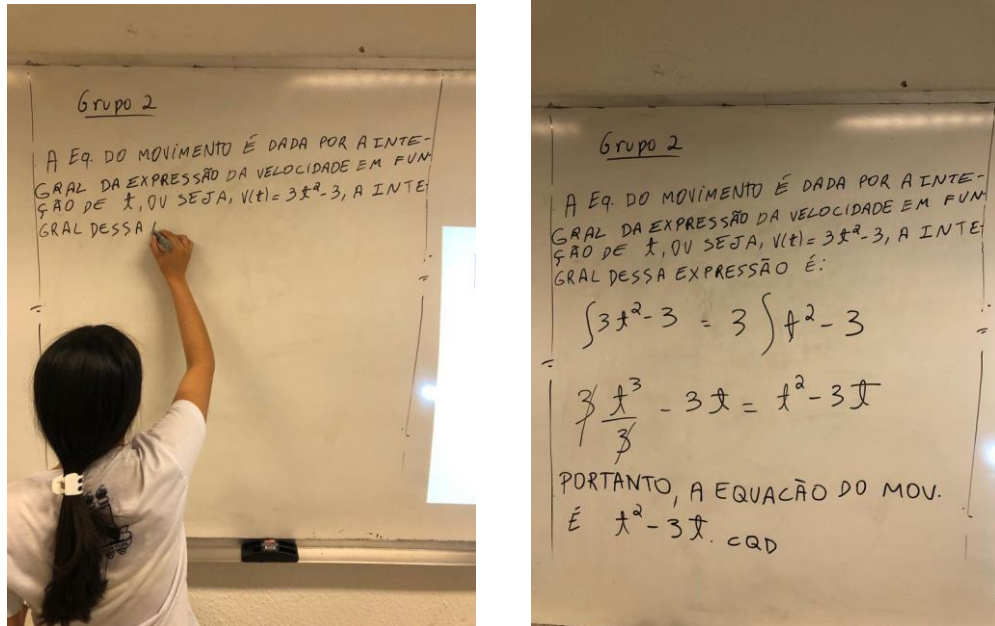 Grupo 2
A Eq. DO MOVIMENTO É DADA POR A INTE-
GRAL DA EXPRESSÃO DA VELOCIDADE EM FUN
ÇÃO DE t, OU SEJA, V(t) = 3t² - 3, A INTE
GRAL DESSA
Grupo 2
A Eq. DO MOVIMENTO É DADA POR A INTE-
GRAL DA EXPRESSÃO DA VELOCIDADE EM FUN
ÇÃO DE t, OU SEJA, V(t) = 3t² - 3, A INTE
GRAL DESSA EXPRESSÃO É:
∫3t² - 3 = 3∫t² - 3
3 t³/3 - 3t = t² - 3t
PORTANTO, A EQUACÃO DO MOV.
É t² - 3t. CQD